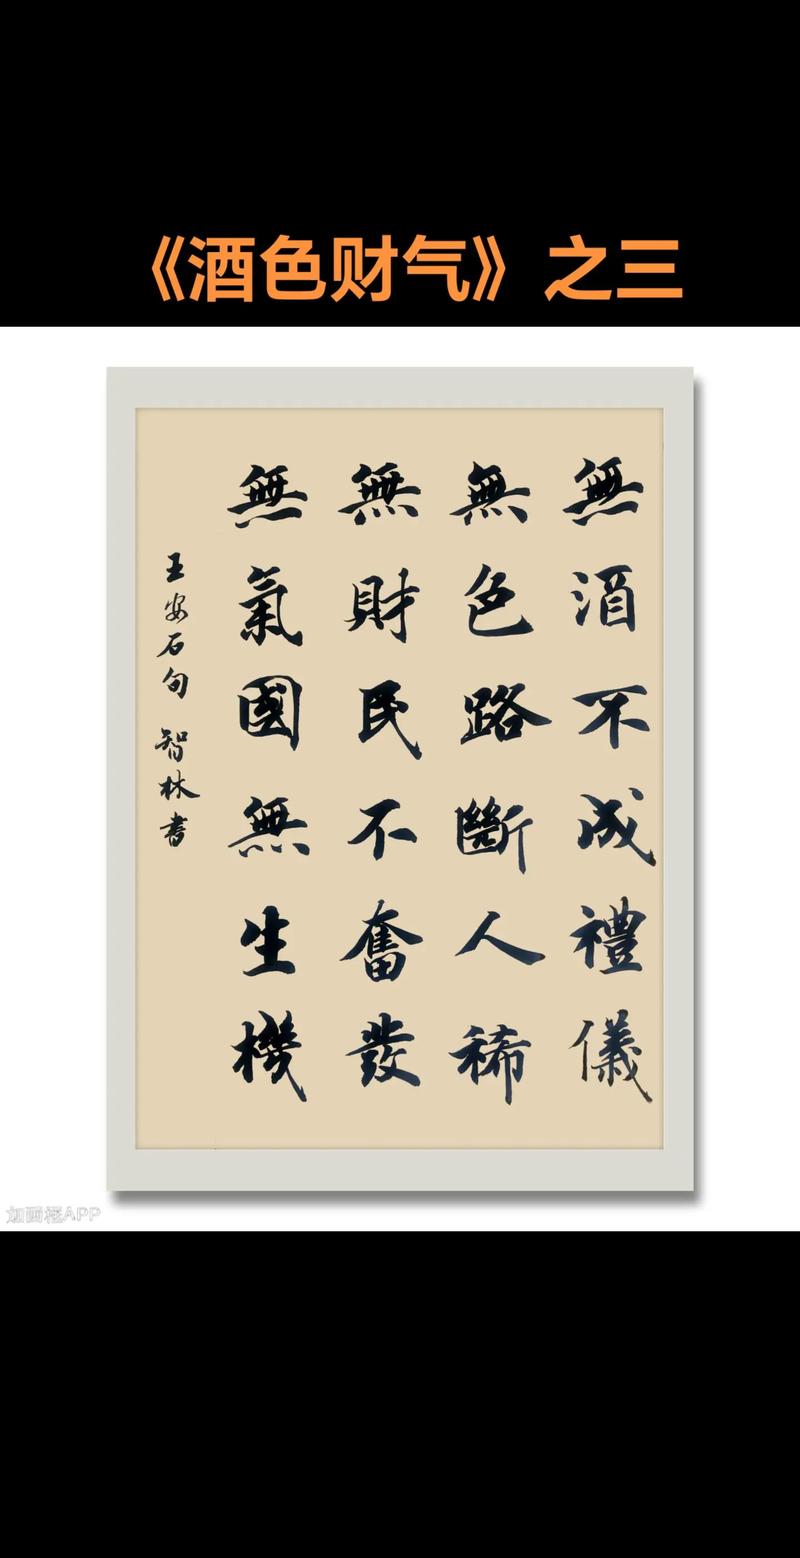 《酒色财气》之三
無酒不成禮儀
無色路斷人稀
無財民不奮發
無氣國無生機
王安石句 智林書
加画框APP